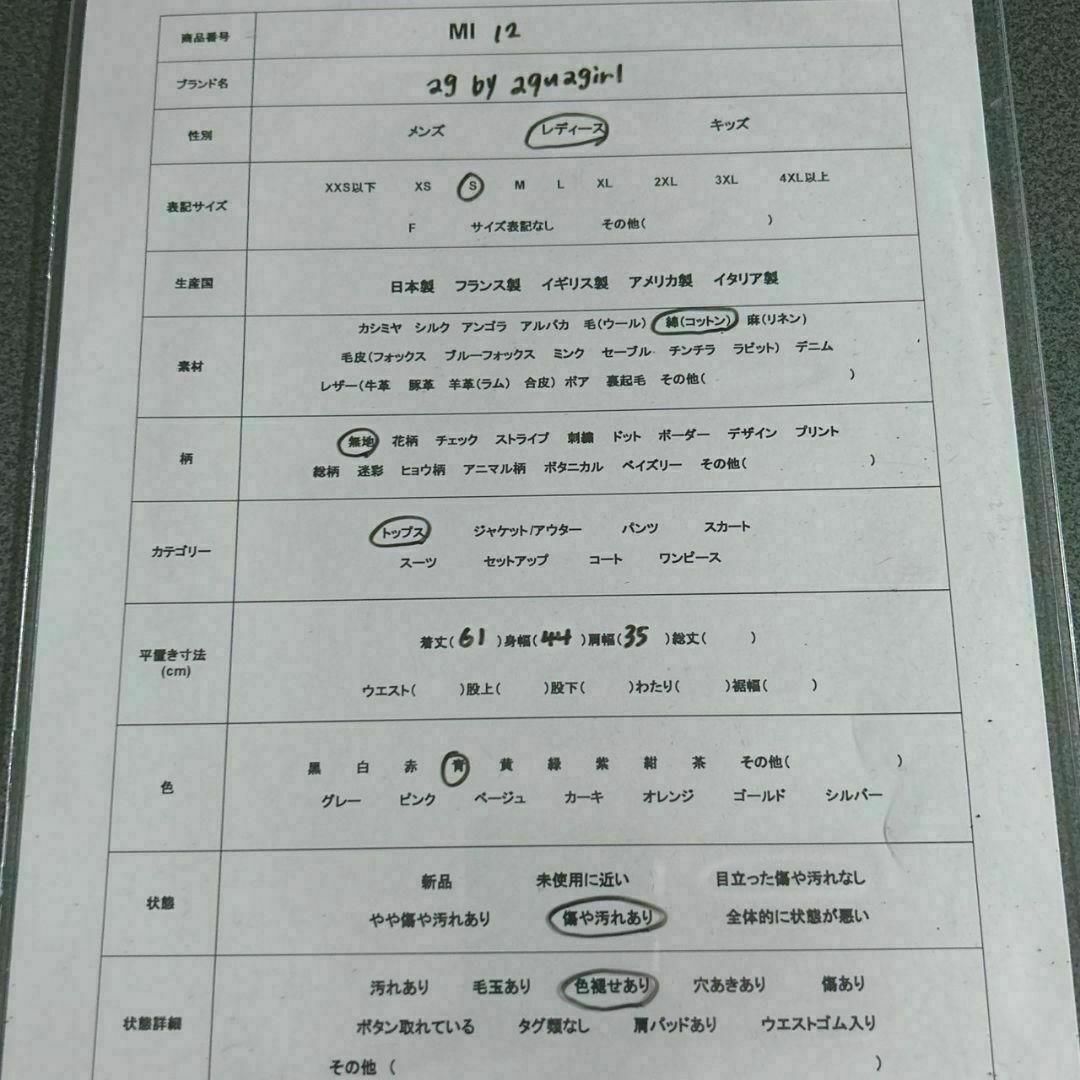 商品番号 MI 12
ブランド名 ag by aquagirl
性別 メンズ レディース キッズ
表記サイズ
XXS以下 XS S M L XL 2XL 3XL 4XL以上
F サイズ表記なし その他( )
生産国 日本製 フランス製 イギリス製 アメリカ製 イタリア製
素材
カシミヤ シルク アンゴラ アルパカ 毛(ウール) 綿(コットン) 麻(リネン)
毛皮(フォックス ブルーフォックス ミンク セーブル チンチラ ラビット) デニム
レザー(牛革 豚革 羊革(ラム) 合皮) ボア 裏起毛 その他( )
柄
無地 花柄 チェック ストライプ 刺繍 ドット ボーダー デザイン プリント
総柄 迷彩 ヒョウ柄 アニマル柄 ボタニカル ペイズリー その他( )
カテゴリー
トップス ジャケット/アウター パンツ スカート
スーツ セットアップ コート ワンピース
平置き寸法
(cm)
着丈(61)身幅(44)肩幅(35)総丈( )
ウエスト( )股上( )股下( )わたり( )裾幅( )
色
黒 白 赤 青 黄 緑 紫 紺 茶 その他( )
グレー ピンク ベージュ カーキ オレンジ ゴールド シルバー
状態
新品 未使用に近い 目立った傷や汚れなし
やや傷や汚れあり 傷や汚れあり 全体的に状態が悪い
状態詳細
汚れあり 毛玉あり 色褪せあり 穴あきあり 傷あり
ボタン取れている タグ類なし 肩パッドあり ウエストゴム入り
その他 ( )